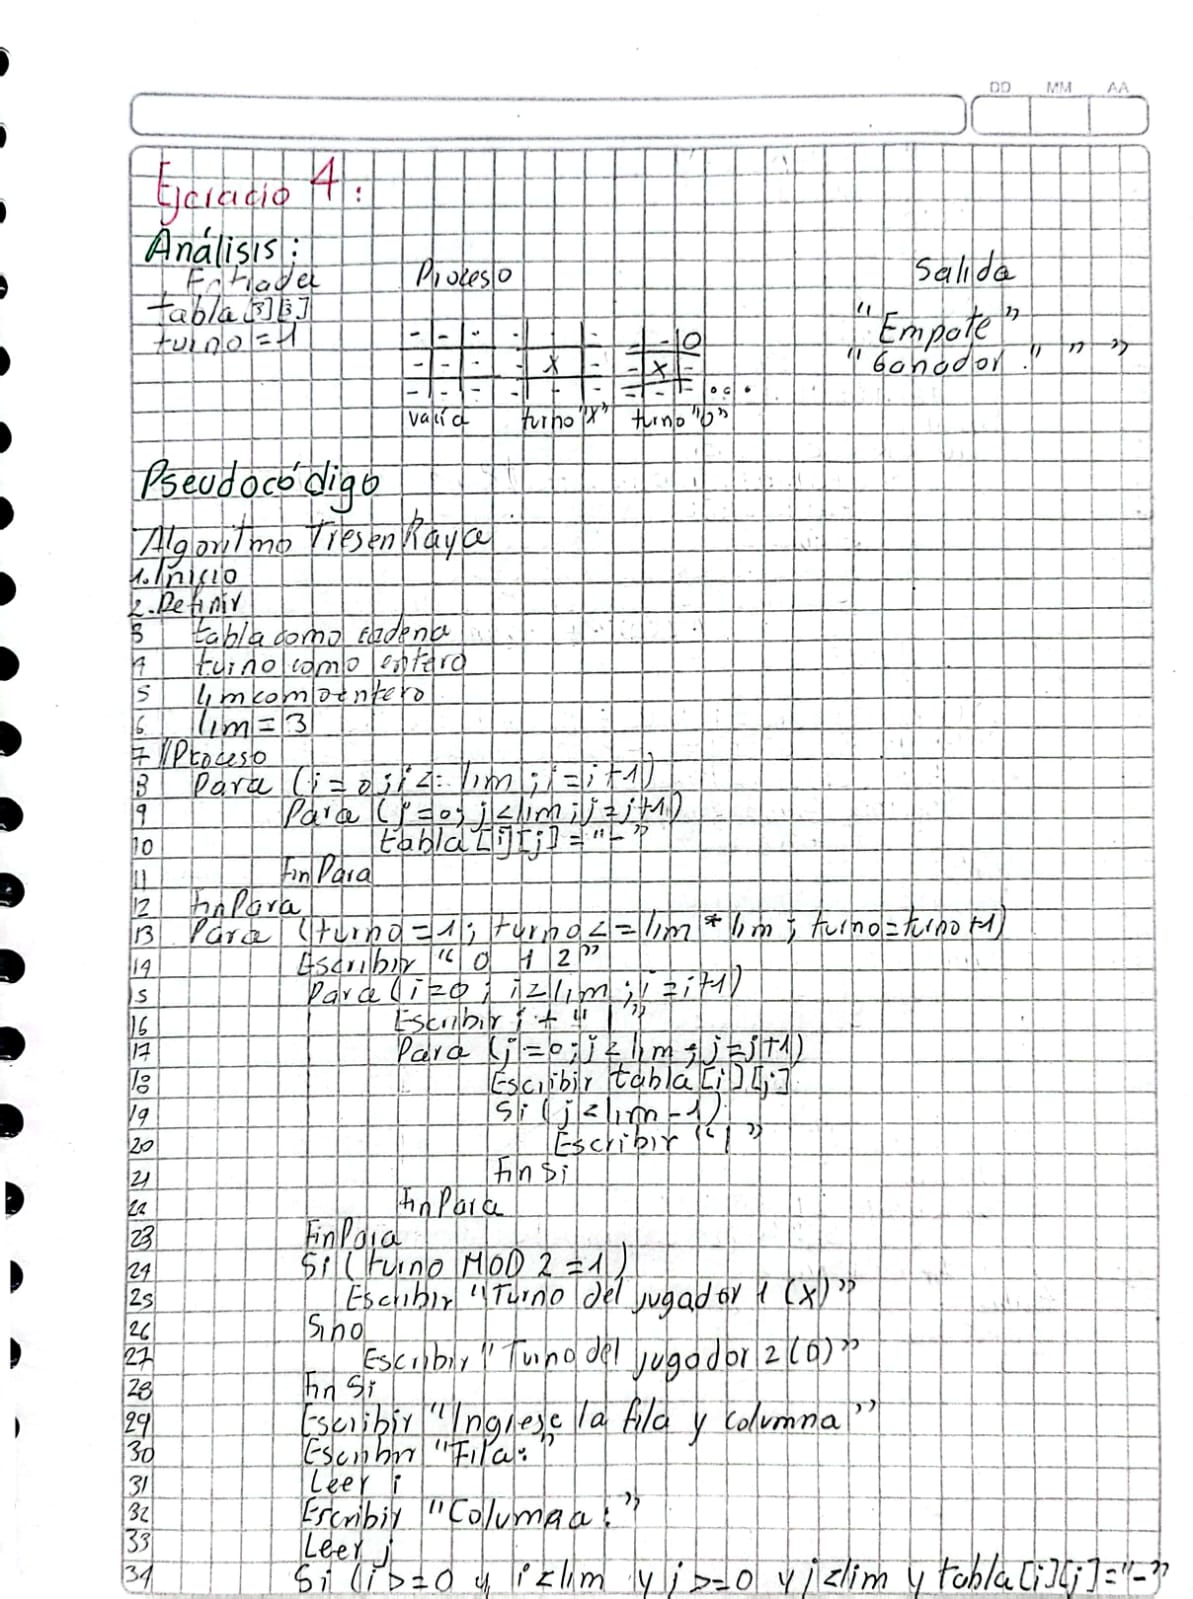 DD MM AA
Ejercicio 4:
Análisis:
Entrada Proceso Salida
tabla[3][3]
turno=1
- - - - - - - O
- - - - X - - X -
- - - - - - - - - ...
vacía turno "X" turno "O"
"Empate"
"Ganador:" " "
Pseudocódigo
Algoritmo TresenRaya
1. Inicio
2. Definir
3 tabla como cadena
4 turno como entero
5 lim como entero
6 lim = 3
7 //Proceso
8 Para (i=0; i<=lim; i=i+1)
9 Para (j=0; j<lim; j=j+1)
10 tabla[i][j]="-"
11 FinPara
12 FinPara
13 Para (turno=1; turno<=lim*lim; turno=turno+1)
14 Escribir " 0 1 2"
15 Para(i=0; i<lim; i=i+1)
16 Escribir i + "|"
17 Para (j=0; j<lim; j=j+1)
18 Escribir tabla[i][j]
19 Si (j<lim-1)
20 Escribir "|"
21 FinSi
22 FinPara
23 FinPara
24 Si (turno MOD 2 =1)
25 Escribir "Turno del jugador 1 (X)"
26 Sino
27 Escribir "Turno del jugador 2 (O)"
28 FinSi
29 Escribir "Ingrese la fila y columna"
30 Escribir "Fila:"
31 Leer i
32 Escribir "Columna:"
33 Leer j
34 Si (i>=0 y i<lim y j>=0 y j<lim y tabla[i][j]="-"